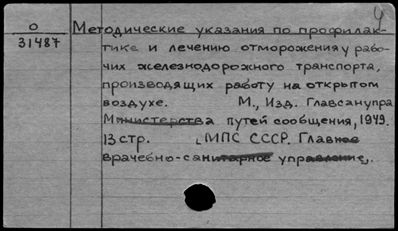 Ч
О
31487
Методические указания по профилак-
тике и лечению отморожения у рабо-
чих железнодорожного транспорта,
производящих работу на открытом
воздухе. М., Изд. Главсанупра
Министерства путей сообщения, 1949.
13 стр. [МПС СССР. Главное
врачебно-санитарное управление].